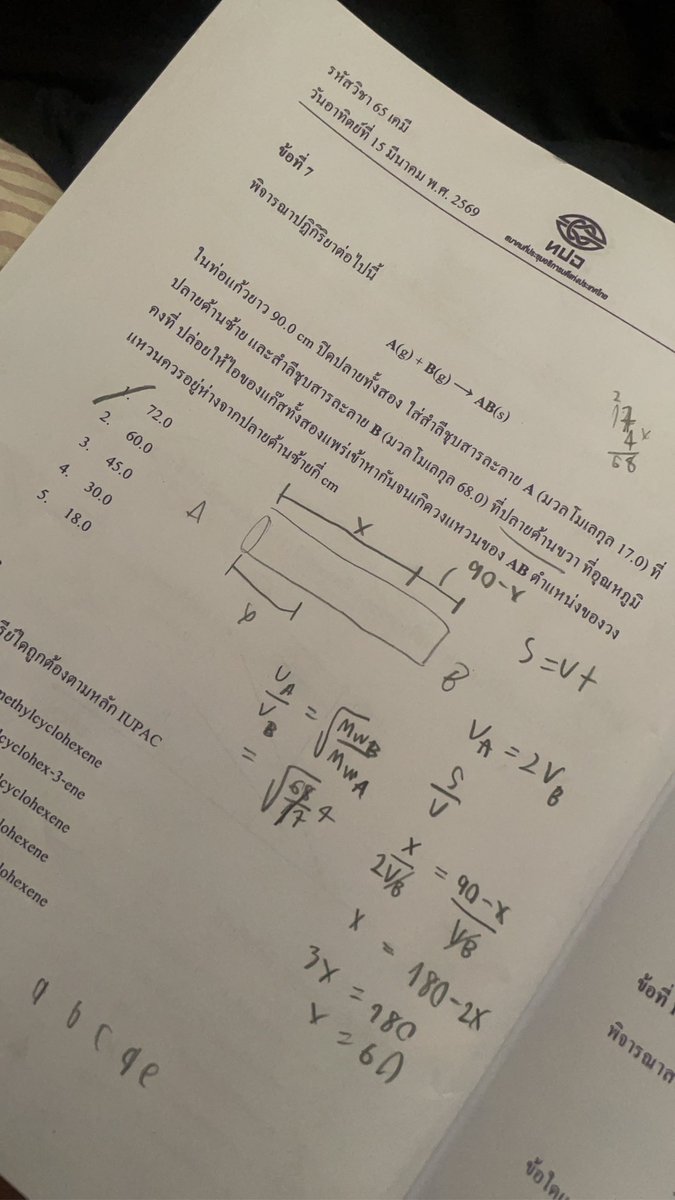 รหัสวิชา 65 เคมี
วันอาทิตย์ที่ 15 มีนาคม พ.ศ. 2569
ทปอ
สมาคมที่ประชุมอธิการบดีแห่งประเทศไทย
ข้อที่ 7
พิจารณาปฏิกิริยาต่อไปนี้
A(g) + B(g) → AB(s)
ในท่อแก้วยาว 90.0 cm ปิดปลายทั้งสอง ใส่สำลีชุบสารละลาย A (มวลโมเลกุล 17.0) ที่
ปลายด้านซ้าย และสำลีชุบสารละลาย B (มวลโมเลกุล 68.0) ที่ปลายด้านขวา ที่อุณหภูมิ
คงที่ ปล่อยให้ไอของแก๊สทั้งสองแพร่เข้าหากันจนเกิดวงแหวนของ AB ตำแหน่งของวง
แหวนควรอยู่ห่างจากปลายด้านซ้ายกี่ cm
1. 72.0
2. 60.0
3. 45.0
4. 30.0
5. 18.0
2
17
4 x
68
A
x
90-x
B
S = vt
V_A / V_B = √(MwB / MwA)
= √(68/17) 4
V_A = 2V_B
S/V
x/2VB = 90-x/VB
x = 180-2x
3x = 180
x = 60
รีย์ใดถูกต้องตามหลัก IUPAC
methylcyclohexene
lcyclohex-3-ene
lcyclohexene
lohexene
lohexene
a b c d e
ข้อที่
พิจารณาส